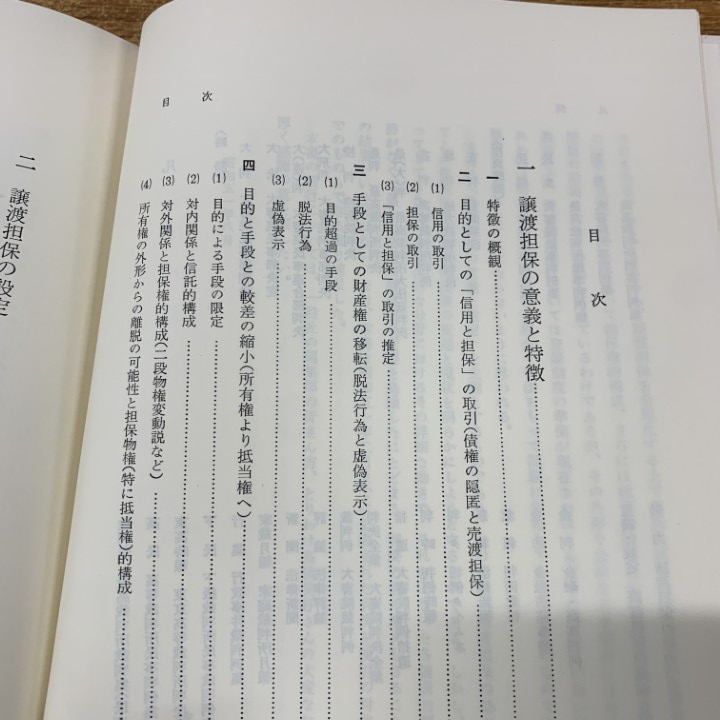 目次
一 譲渡担保の意義と特徴
一 特徴の概観
二 目的としての「信用と担保」の取引(債権の隠匿と売渡担保)
(1) 信用の取引
(2) 担保の取引
(3) 「信用と担保」の取引の推定
三 手段としての財産権の移転(脱法行為と虚偽表示)
(1) 目的超過の手段
(2) 脱法行為
(3) 虚偽表示
四 目的と手段との較差の縮小(所有権より抵当権へ)
(1) 目的による手段の限定
(2) 対内関係と信託的構成
(3) 対外関係と担保権的構成(二段物権変動説など)
(4) 所有権の外形からの離脱の可能性と担保物権(特に抵当権)的構成
目次
二 譲渡担保の設定